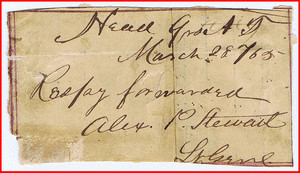 Head Qrs A T
March 28 /65
Respy forwarded
Alex. P. Stewart
Lt Genl